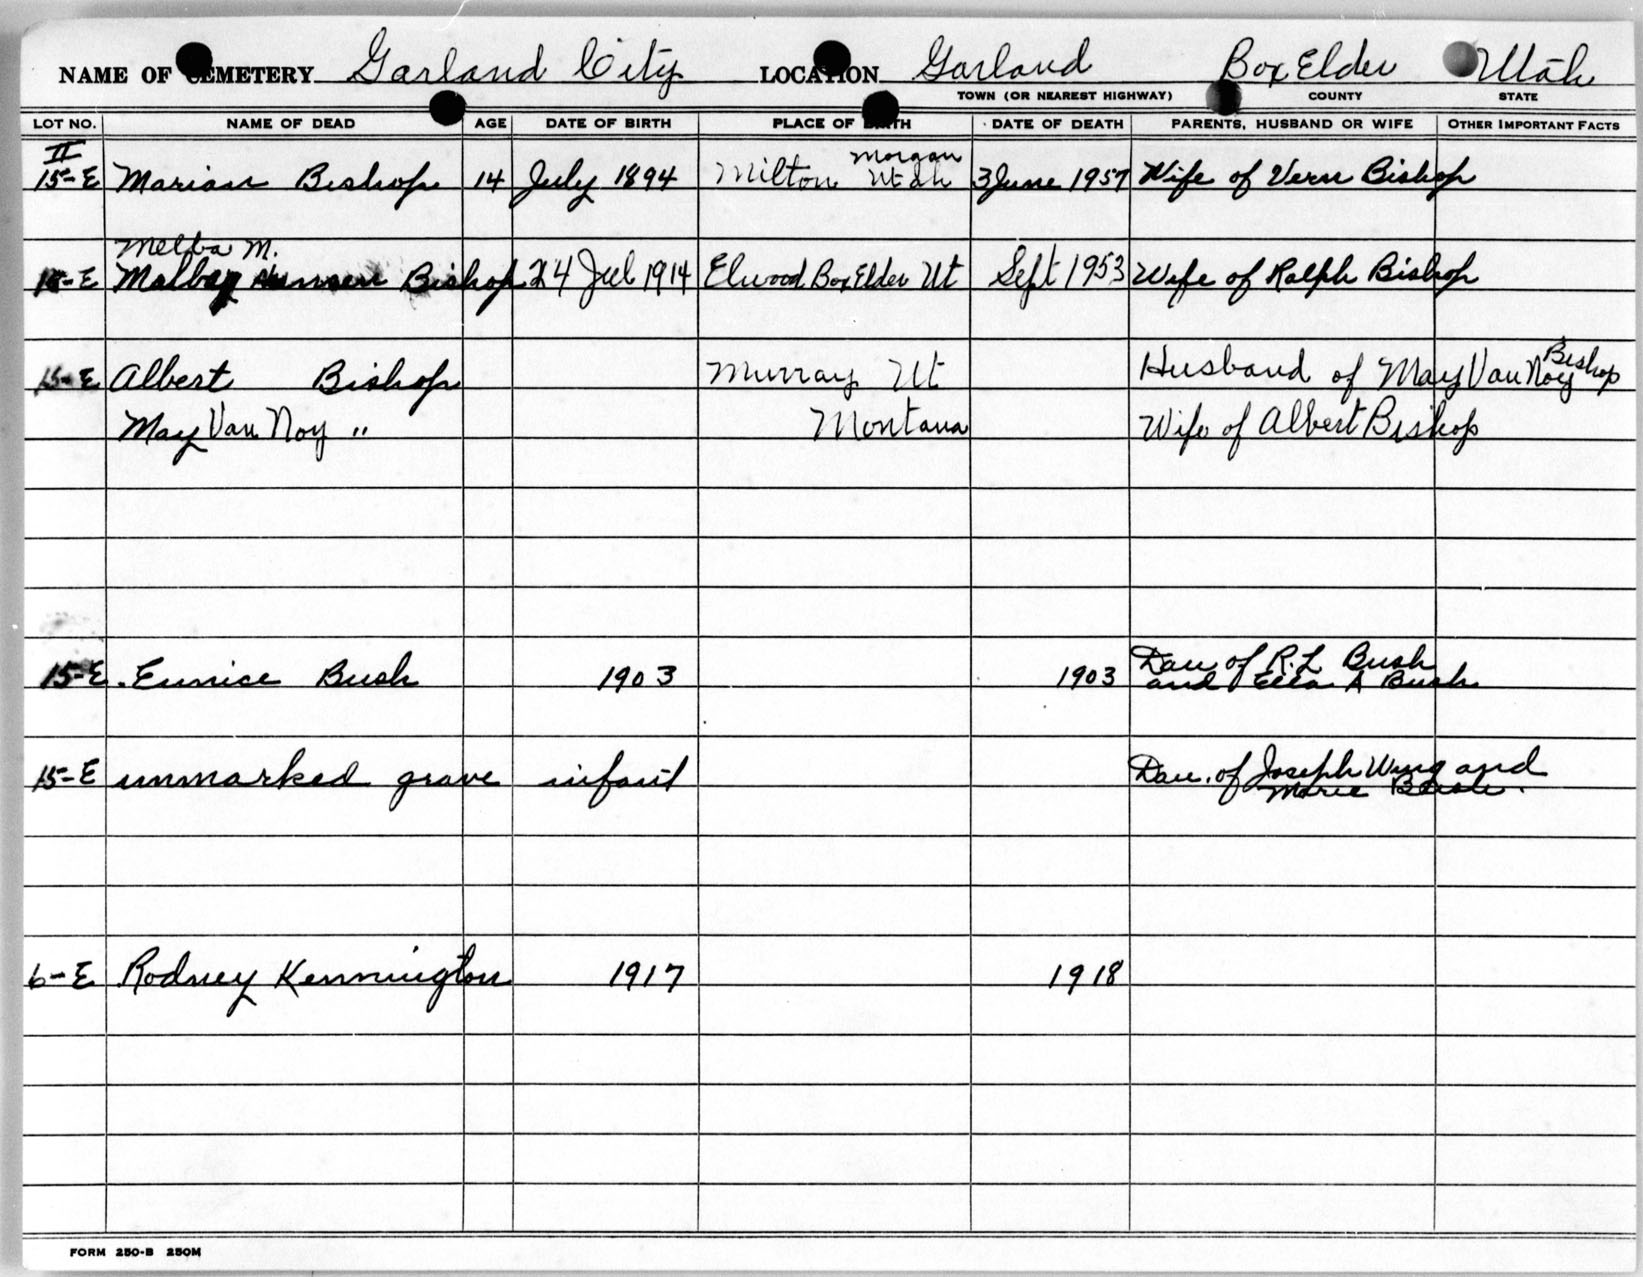 NAME OF CEMETERY Garland City LOCATION Garland Box Elder Utah
TOWN (OR NEAREST HIGHWAY) COUNTY STATE
LOT NO. NAME OF DEAD AGE DATE OF BIRTH PLACE OF BIRTH DATE OF DEATH PARENTS, HUSBAND OR WIFE OTHER IMPORTANT FACTS
II Morgan
15-E Marian Bishop 14 July 1894 Milton Utah 3 June 1957 Wife of Vern Bishop
Melba M.
15-E Hansen Bishop 24 Jul 1914 Elwood Box Elder Ut Sept 1953 Wife of Ralph Bishop
15-E Albert Bishop Murray Ut Husband of May Van Noy Bishop
May Van Noy " Montana Wife of Albert Bishop
Dau of R. L Bush
15-E Eunice Bush 1903 1903 and Ella A Bush
15-E unmarked grave infant Dau. of Joseph Wing and
Marie
6-E Rodney Kennington 1917 1918
FORM 250-B 250M